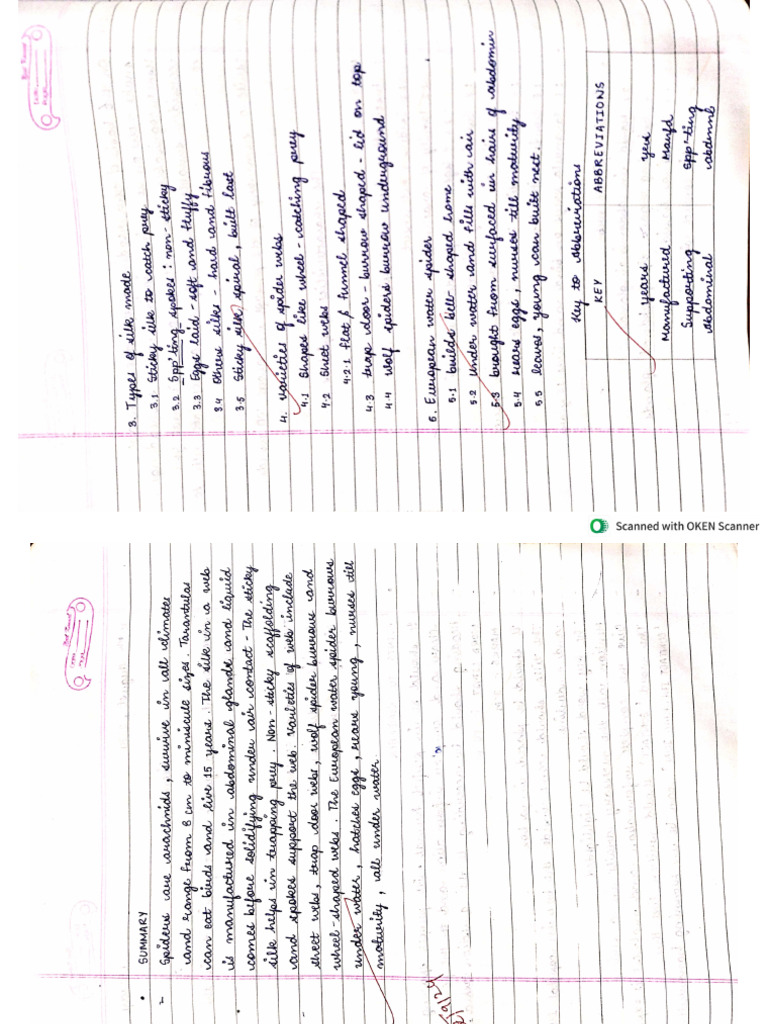 3. Types of silk made
3.1 Sticky silk to catch prey
3.2 Spp'ting spokes: non-sticky
3.3 Eggs laid - soft and fluffy
3.4 Others silks - hard and fibrous
3.5 Sticky silk spiral, built last
4. Varieties of spider webs
4.1 Shapes like wheel - catching prey
4.2 Sheet webs
4.2.1 flat / funnel shaped
4.3 trap door - burrow shaped - lid on top
4.4 wolf spiders burrow underground
5. European water spider
5.1 builds bell-shaped home
5.2 under water and fills with air
5.3 brought from surfaced in hairs of abdomin
5.4 rears eggs, nurses till maturity
5.5 leaves, young can built nest.
Key to abbreviations
KEY ABBREVIATIONS
years yrs
Manufactured Manfd
Supporting Spp'ting
abdominal abdmnl
Scanned with OKEN Scanner
• SUMMARY
Spiders are arachnids, survive in all climates
and range from 8 cm to miniscule sizes. Tarantulas
can eat birds and live 15 years. The silk in a web
is manufactured in abdominal glands and liquid
comes before solidifying under air contact - The sticky
silk helps in trapping prey. Non-sticky scaffolding
and spokes support the web. Varieties of web include
sheet webs, trap door webs, wolf spider burrows and
wheel-shaped webs. The European water spider burrows
under water, hatches eggs, rears young, nurses till
maturity, all under water